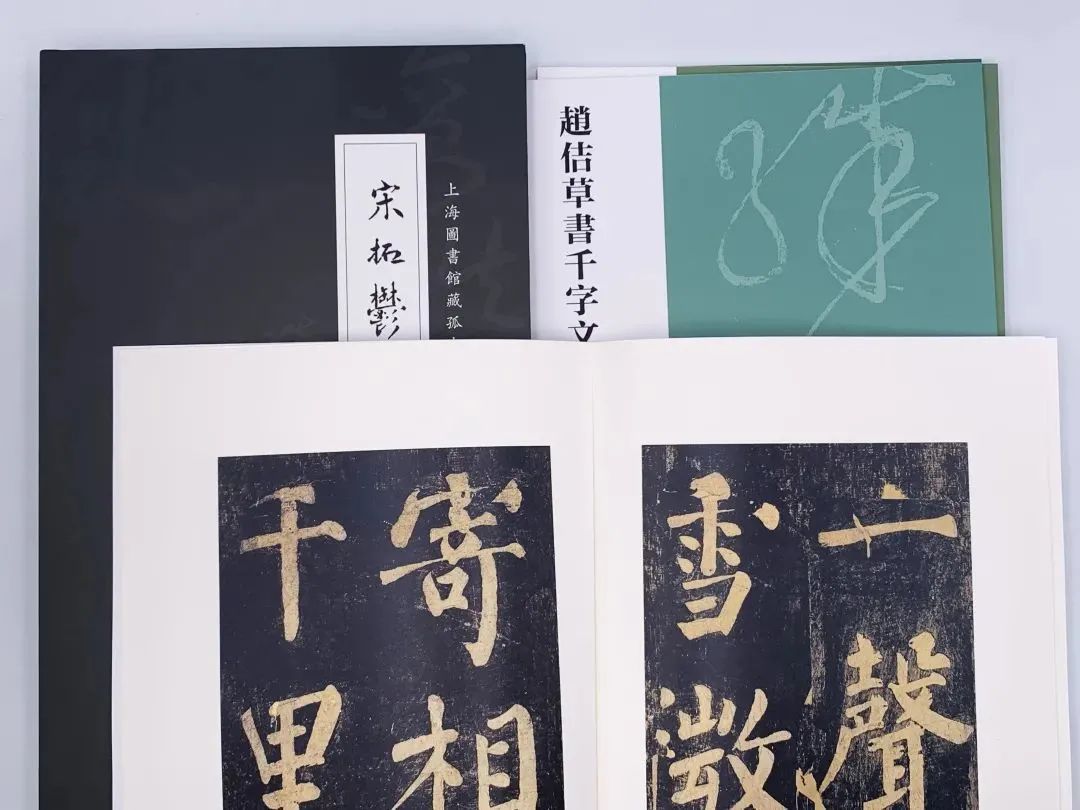 宋拓鬱
上海圖書館藏孤
趙佶草書千字文
一聲
雪澂
寄相
千里